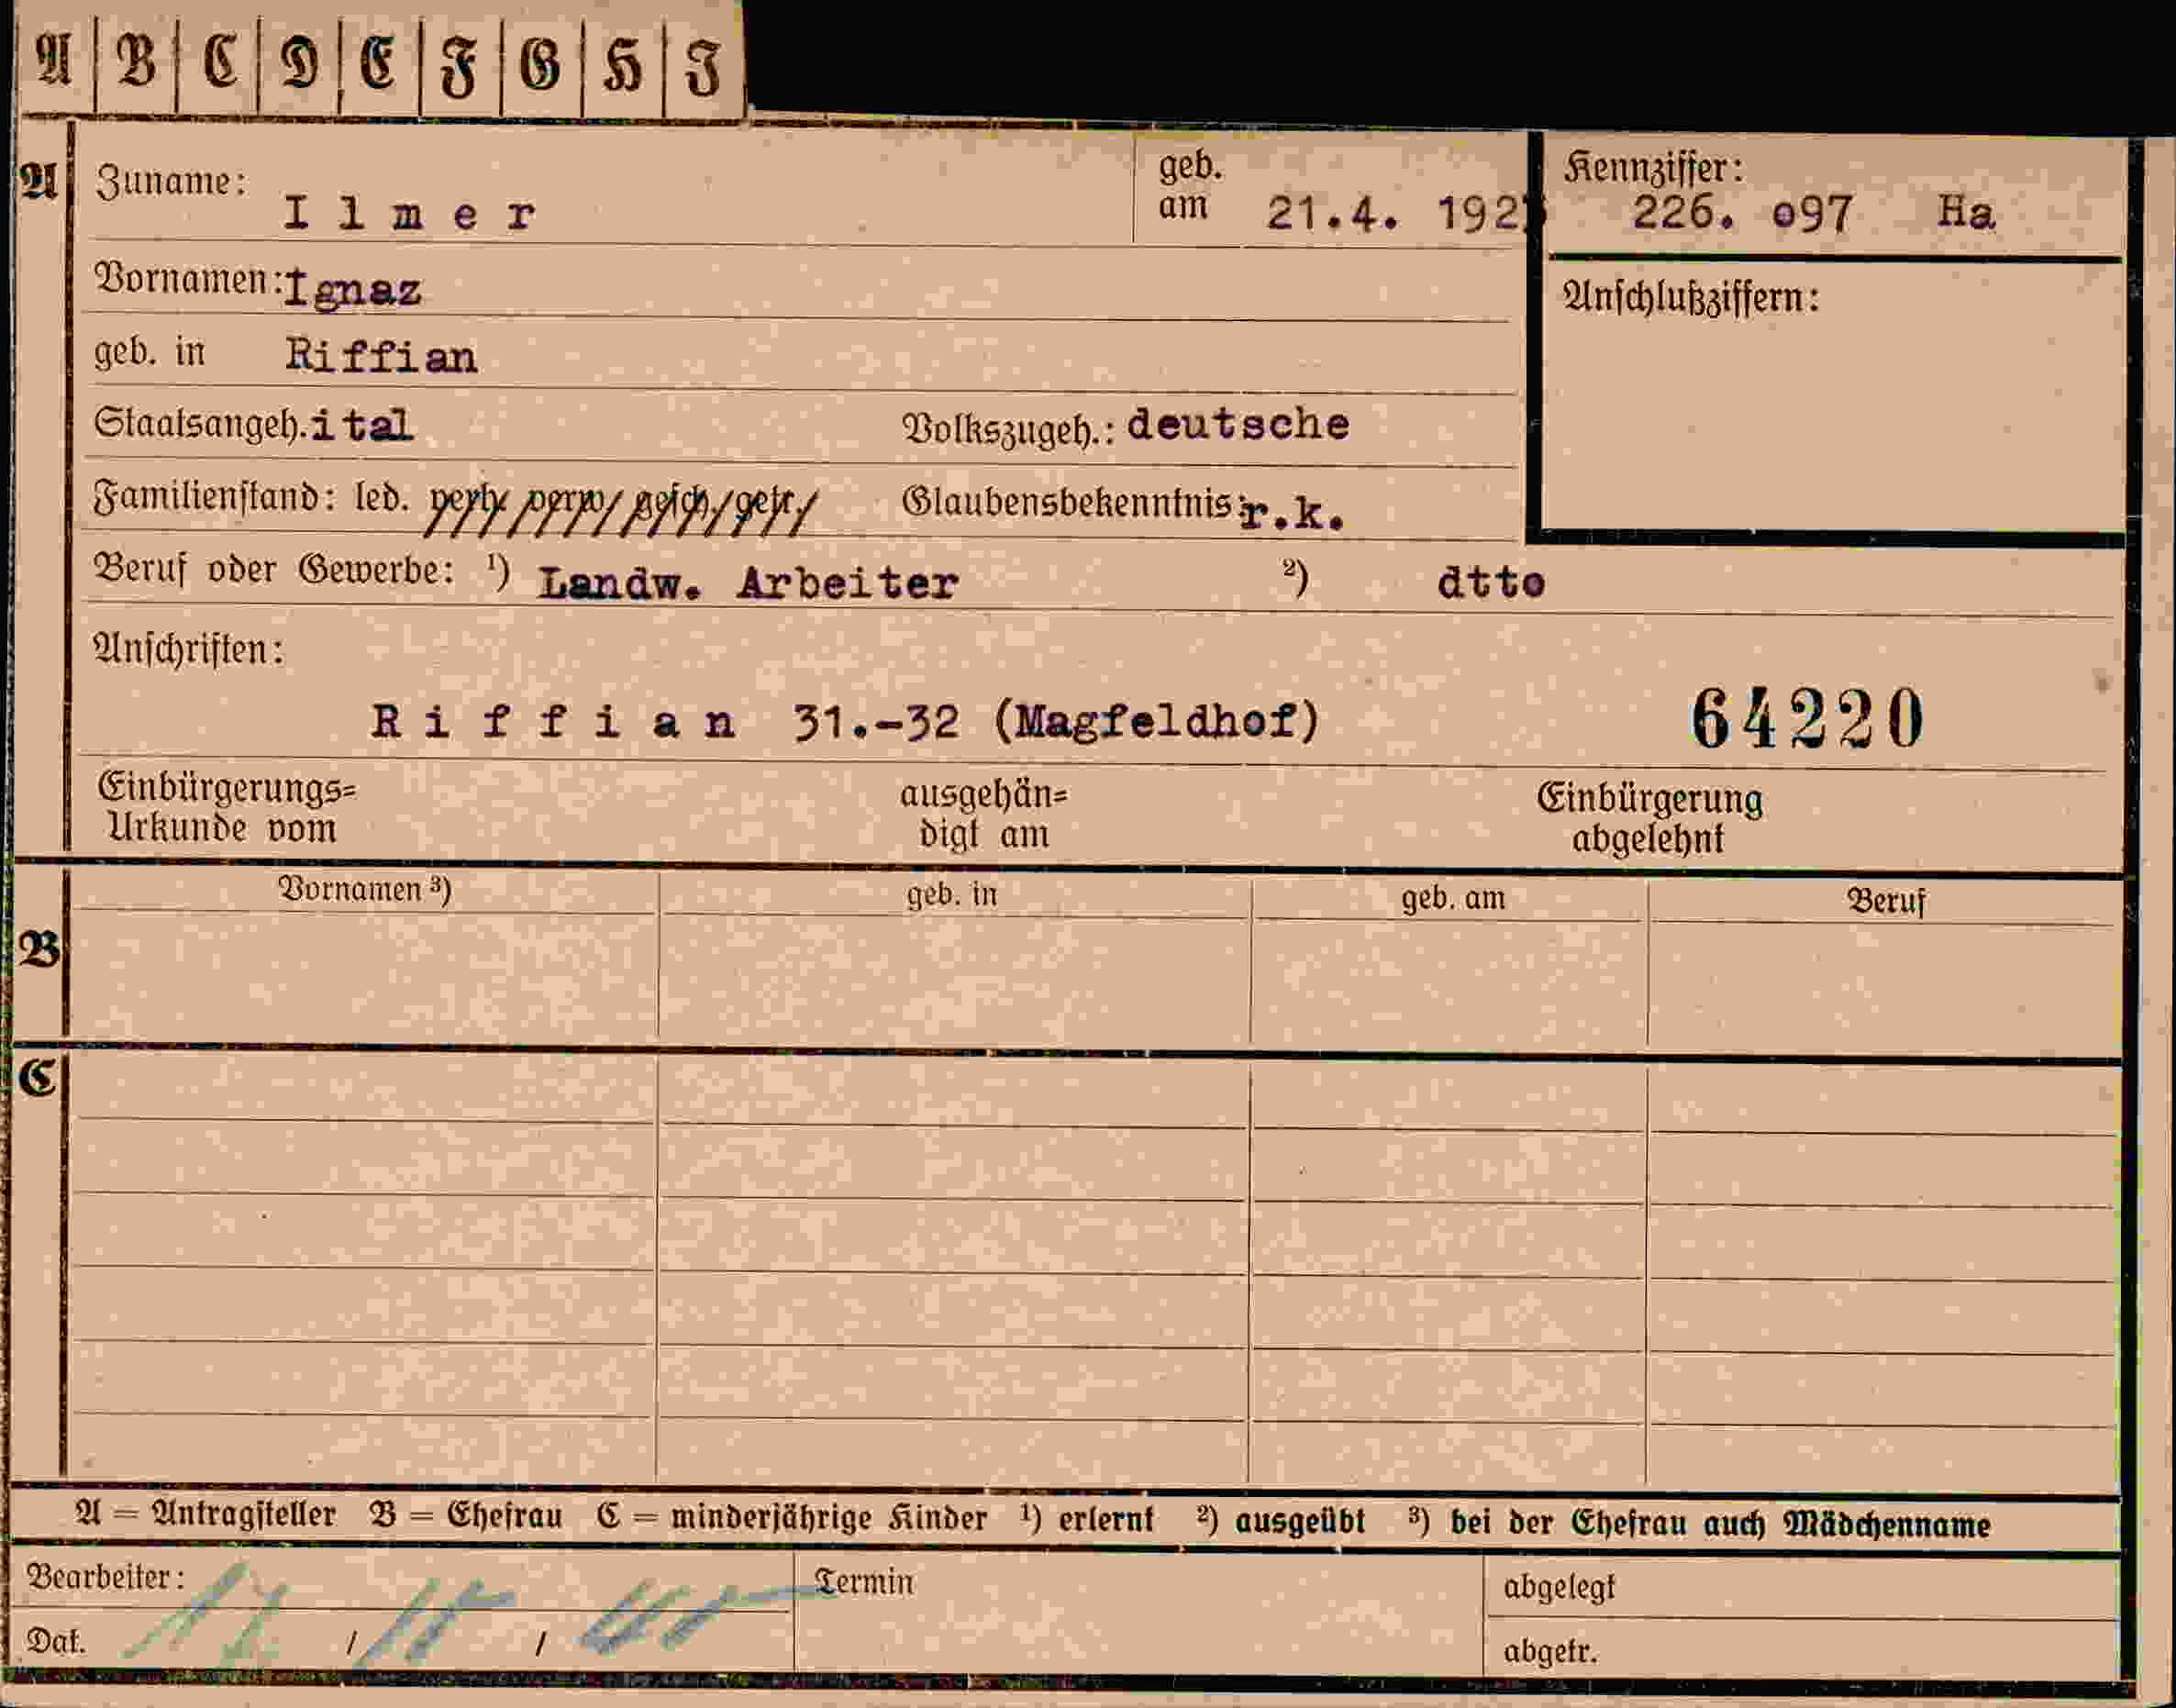 A B C D E F G H I
A Zuname: Ilmer geb. am 21.4. 192 Kennziffer: 226. o97 Ha
Vornamen: Ignaz Anschlußziffern:
geb. in Riffian
Staatsangeh. ital Volkszugeh.: deutsche
Familienstand: led. verh/ verw/ gesch/ getr/ Glaubensbekenntnis: r.k.
Beruf oder Gewerbe: ¹) Landw. Arbeiter ²) dtto
Anschriften:
Riffian 31.-32 (Magfeldhof) 64220
Einbürgerungs= ausgehän= Einbürgerung
Urkunde vom digt am abgelehnt
Vornamen ³) geb. in geb. am Beruf
B
C
A = Antragsteller B = Ehefrau C = minderjährige Kinder ¹) erlernt ²) ausgeübt ³) bei der Ehefrau auch Mädchenname
Bearbeiter: Termin abgelegt
Dat. / / abgetr.